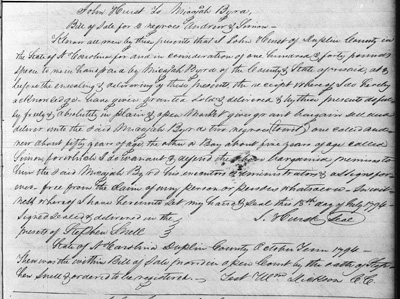 John Hurst To Micajah Byrd,
Bill of Sale for 2 negroes Andrew & Simon—
Know all men by these presents that I John Hurst of Duplin County in
the State of N Carolina for and in consideration of one hundred & forty pounds
Specie to me in hand paid by Micajah Byrd of the County & State aforesaid, at &
before the ensealing & delivering of these presents the receipt whereof I do hereby
acknowledge have given granted Sold & delivered & by these presents do
freely & absolutely in plain & open Market give grant bargain sell and
deliver unto the said Micajah Byrd two negroes one called
now about fifty years of age the other a Boy about five years of age called
Simon for which I do warrant & defend the bargained premises to
him the said Micajah Byrd his executors & administrators & assigns for
ever free from the Claim of any person or persons whatsoever. In wit
ness whereof I have hereunto set my hand & Seal this 15th day of July 1794
Signed Sealed & delivered in the J. Hurst Seal
presence of Stephen Snell
State of N Carolina Duplin County October Term 1794—
Then was the within Bill of Sale proven in open Court by the oath of
Snell & ordered to be registered. Test Wm Dickson C.C.